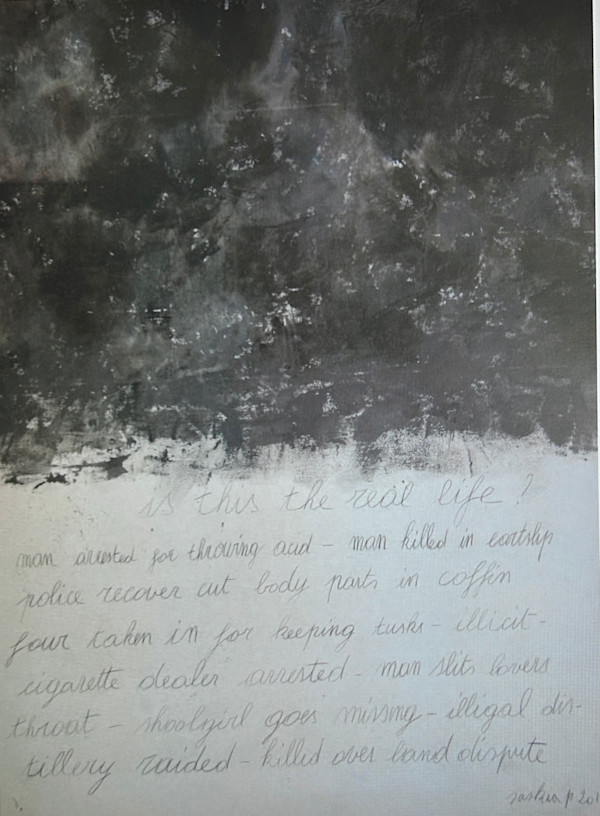 is this the real life?
man arrested for throwing acid - man killed in eartslip
police recover cut body parts in coffin
four taken in for keeping tusks - illicit -
cigarette dealer arrested - man slits lovers
throat - shoolgirl goes missing - illigal dis-
tillery raided - killed over land dispute
saskia p 201